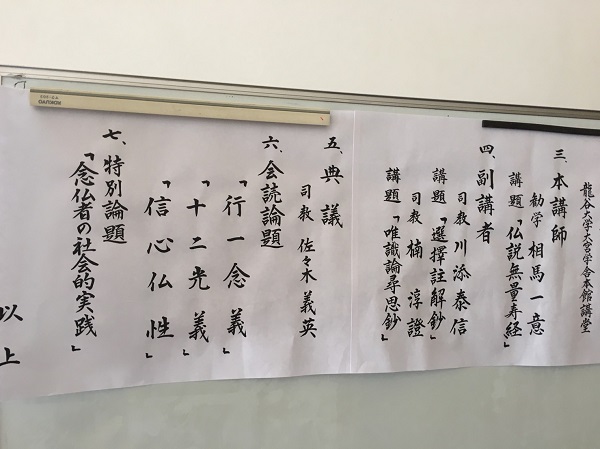 龍谷大学大宮学舎本館講堂
三、本講師
勧学 相馬一意
講題「仏説無量寿経」
四、副講者
司教 川添泰信
講題「選擇註解鈔」
司教 楠 淳證
講題「唯識論尋思鈔」
五、典議
司教 佐々木義英
六、会読論題
「行一念義」
「十二光義」
「信心仏性」
七、特別論題
「念仏者の社会的実践」
以上